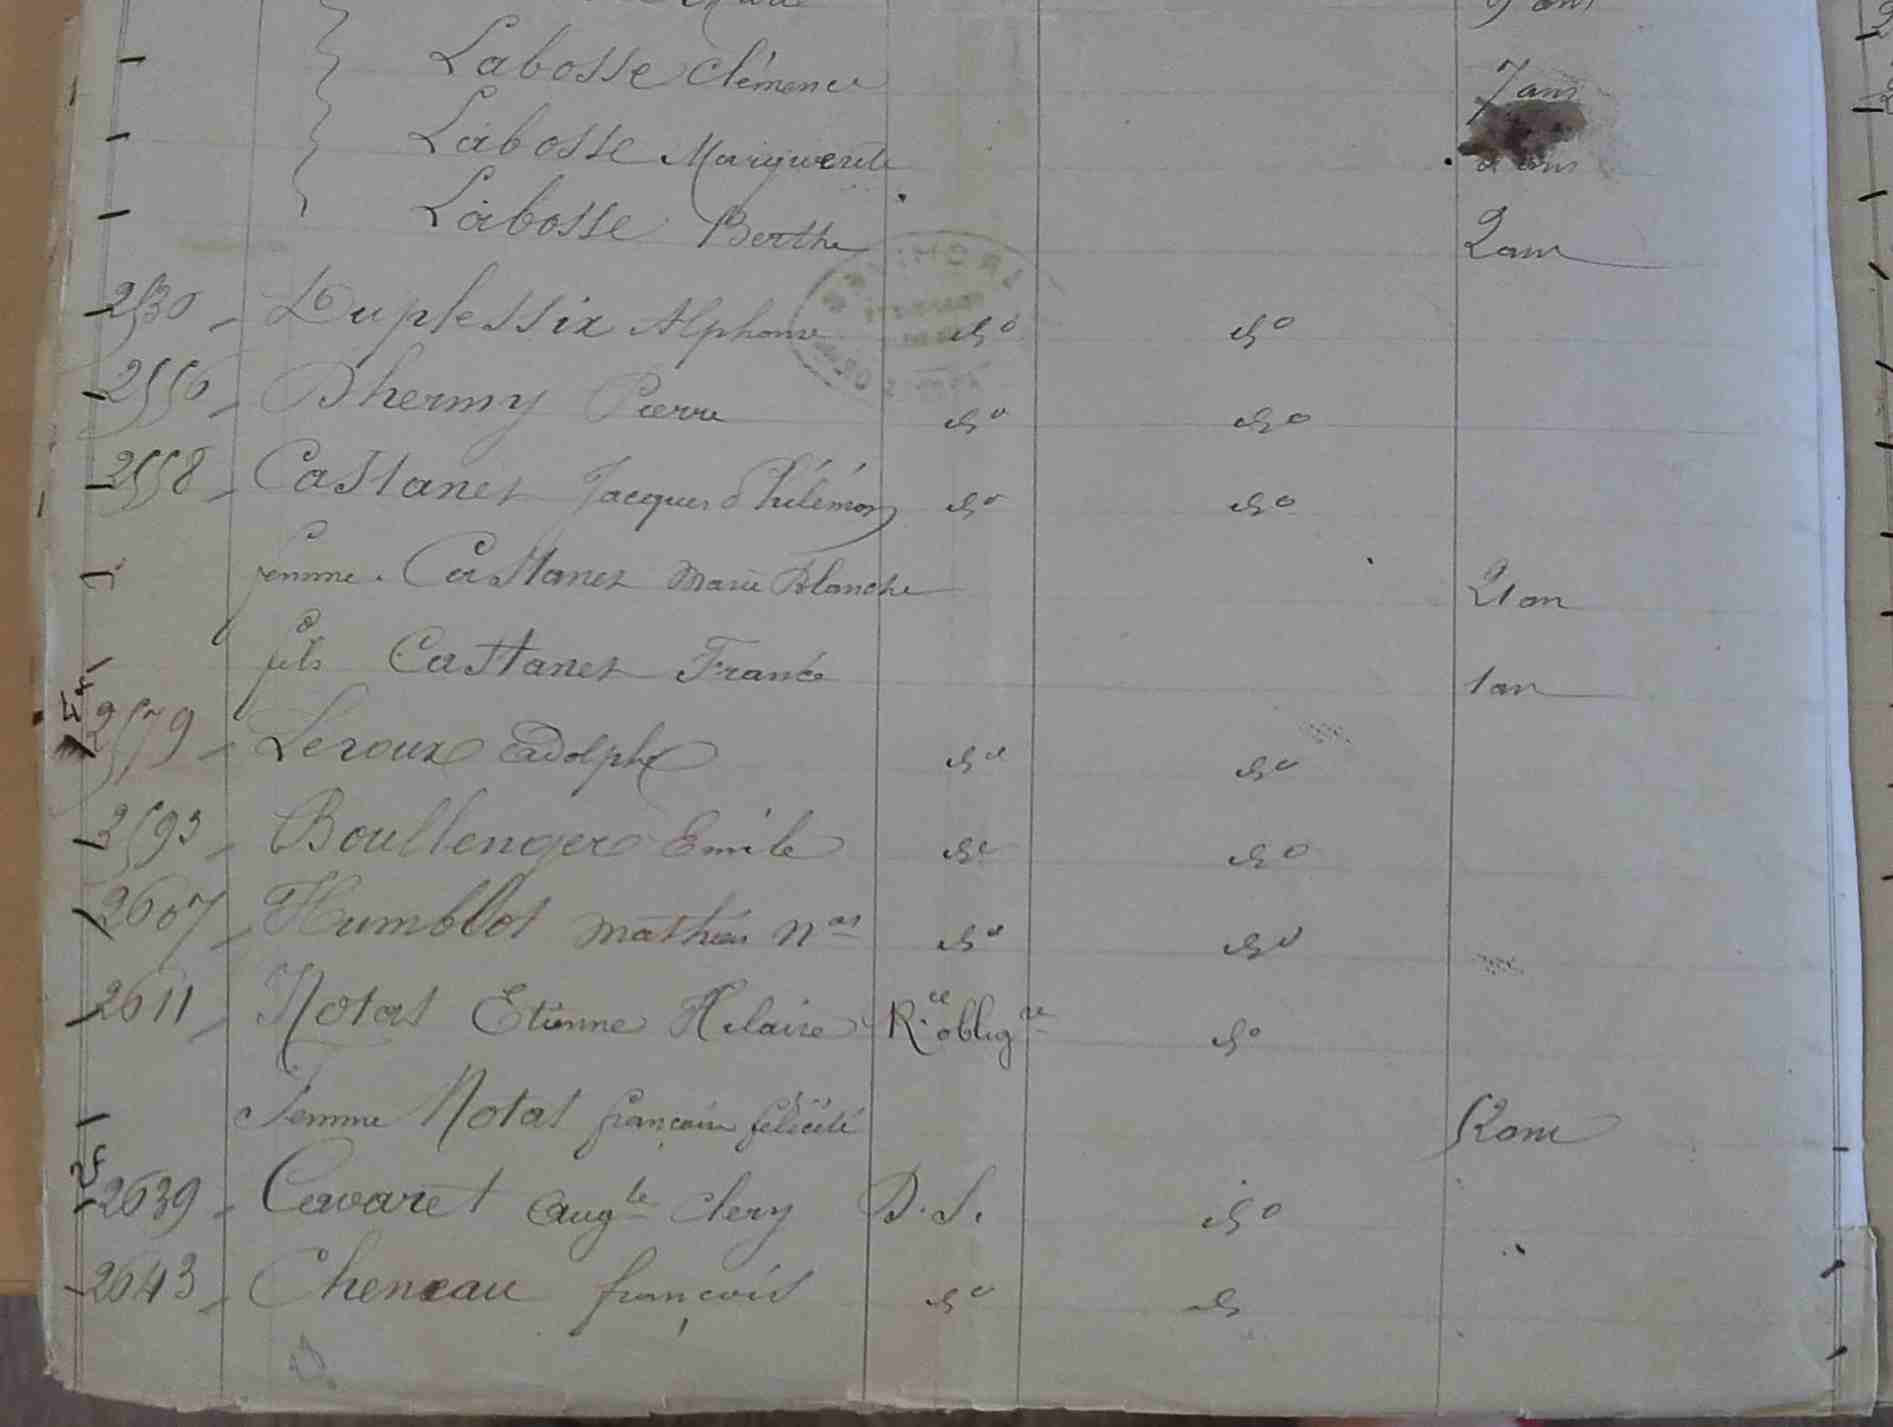 9 ans
Labosse Clémence 7 ans
Labosse Marguerite ans
Labosse Berthe 2 ans
2530 - Duplessix Alphonse do do
2556 - Dhermy Pierre do do
2558 - Castanet Jacques Philémon do do
femme. Castanet Marie Blanche 21 an
fils Castanet Franc 1 an
2579 - Leroux Adolphe do do
2593 - Boullenger Emile do do
2607 - Humblot Mathieu Nas do do
2611 - Notat Etienne Hilaire Rce obligre do
Femme Notat françoise félicité 52 ans
2639 - Cavaret Augte Clery D. S. do
2643 - Cheneau françois do do